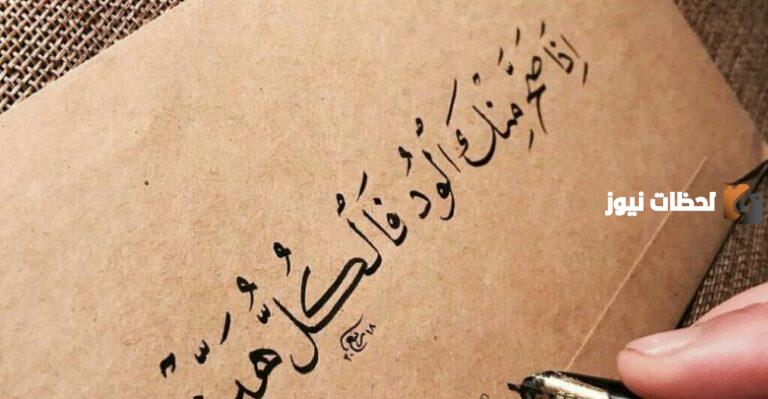 إِذَا صَحَّ مِنْكَ الْوُدُ فَالْكُلُّ هَيّ
لحظات نيوز